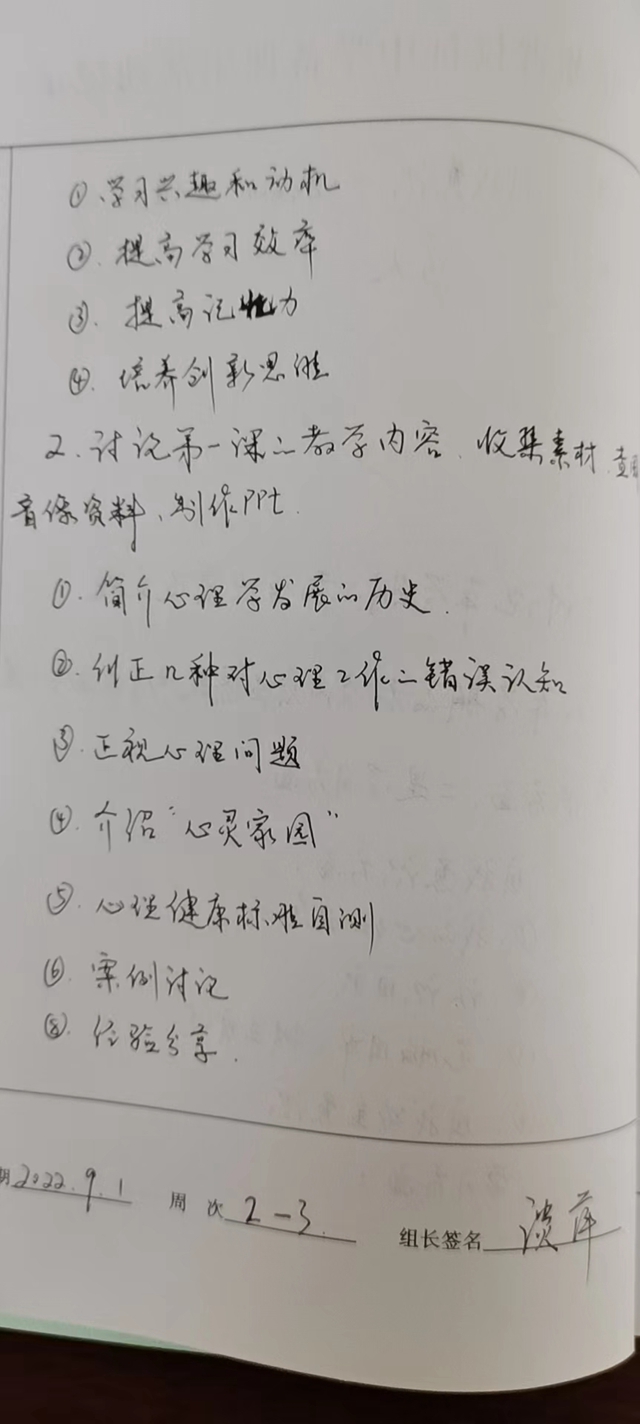 ①.学习兴趣和动机
②.提高学习效率
③.提高记忆力
④.培养创新思维
2.讨论第一课的教学内容.收集素材.查
音像资料、制作PPt.
①.简介心理学发展的历史.
②.纠正几种对心理工作的错误认知
③.正视心理问题
④.介绍“心灵家园”
⑤.心理健康标准自测
⑥.案例讨论
⑧.经验分享.
期2022.9.1 周 次2-3. 组长签名谈萍